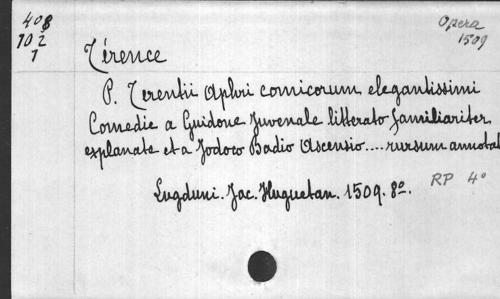 408
102
1
Opera
1509
Térence
P. Terentii Aphri comicorum elegantissimi
Comedie a Guidone Juvenale litterato familiariter
explanate et a Jodoco Badio Ascensio....rursum annotat
Lugduni. Jac. Huguetan. 1509. 8º.
RP 4º